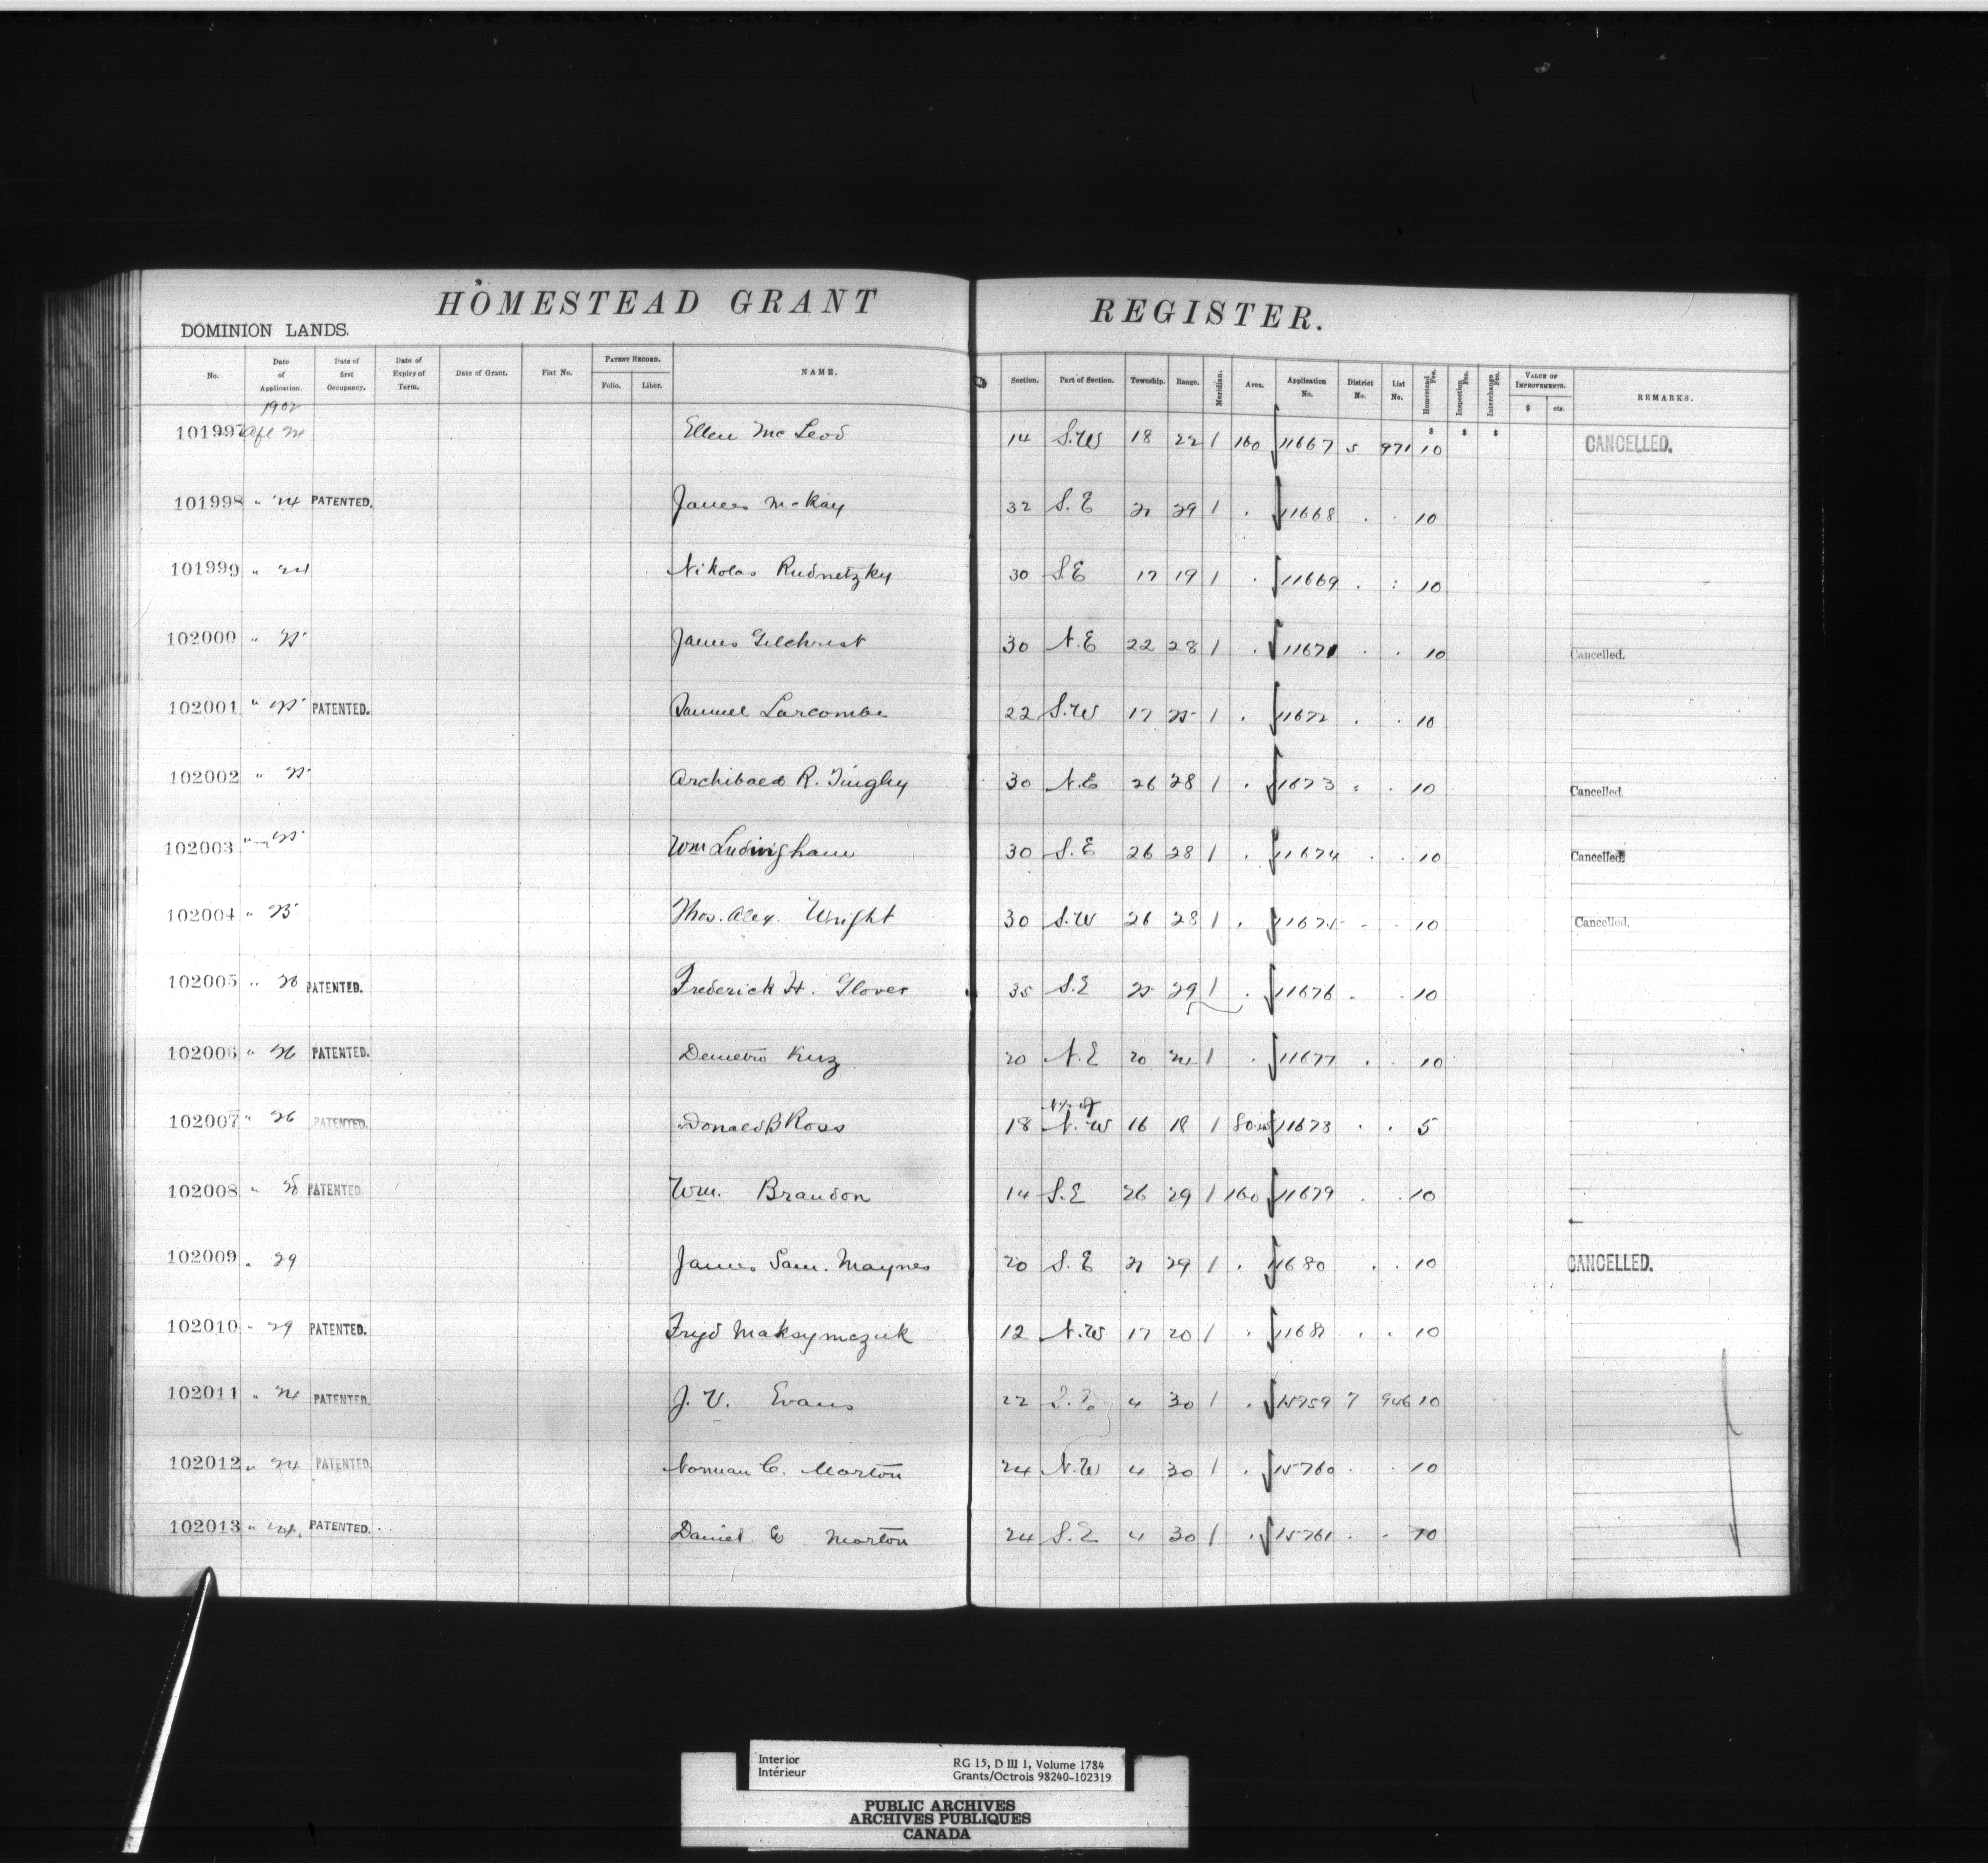 HOMESTEAD GRANT REGISTER.
DOMINION LANDS.
No. Date of Application. Date of first Occupancy. Date of Expiry of Term. Date of Grant. Fiat No. PATENT RECORD. Folio. Liber. NAME. Section. Part of Section. Township. Range. Meridian. Area. Application No. District No. List No. Homestead Fee. Inspection Fee. Interchange Fee. VALUE OF IMPROVEMENTS. $ cts. REMARKS.
1902
101997 24 Ellen McLeod 14 S.W 18 22 1 160 11667 5 971 10 CANCELLED.
101998 " 24 PATENTED. James McKay 32 S.E 21 29 1 . 11668 . . 10
101999 " 24 Nikolas Rudnetzky 30 S.E 17 19 1 . 11669 . : 10
102000 " 25 James Gilchrist 30 N.E 22 28 1 . 11671 . . 10 Cancelled.
102001 " 25 PATENTED. Samuel Larcombe 22 S.W 17 25 1 . 11672 . . 10
102002 " 25 Archibald R. Tingley 30 N.E 26 28 1 . 11673 . . 10 Cancelled.
102003 " 25 Wm Ludwingham 30 S.E 26 28 1 . 11674 . . 10 Cancelled.
102004 " 25 Thos. Alex. Wright 30 S.W 26 28 1 . 11675 . . 10 Cancelled.
102005 " PATENTED. Frederick H. Glover 35 S.E 25 29 1 . 11676 . . 10
102006 " 26 PATENTED. Demetro Kuz 20 N.E 20 24 1 . 11677 . . 10
102007 " 26 PATENTED. Donald B Ross 18 N½ of N.W 16 18 1 11678 . . 5
102008 " 28 PATENTED. Wm. Brandon 14 S.E 26 29 1 160 11679 . . 10
102009 " 29 James Sam. Maynes 20 S.E 21 29 1 . 11680 . . 10 CANCELLED.
102010 " 29 PATENTED. Fryd Maksymczuk 12 N.W 17 20 1 . 11681 . . 10
102011 " 24 PATENTED. J. V. Evans 22 4 30 1 . 15759 7 946 10
102012 " 24 PATENTED. Norman C. Morton 24 N.W 4 30 1 . 15760 . . 10
102013 " 24 PATENTED. Daniel E Morton 24 S.E 4 30 1 . 15761 . . 10
Interior
Intérieur
RG 15, D III 1, Volume 1784
Grants/Octrois 98240-102319
PUBLIC ARCHIVES
ARCHIVES PUBLIQUES
CANADA